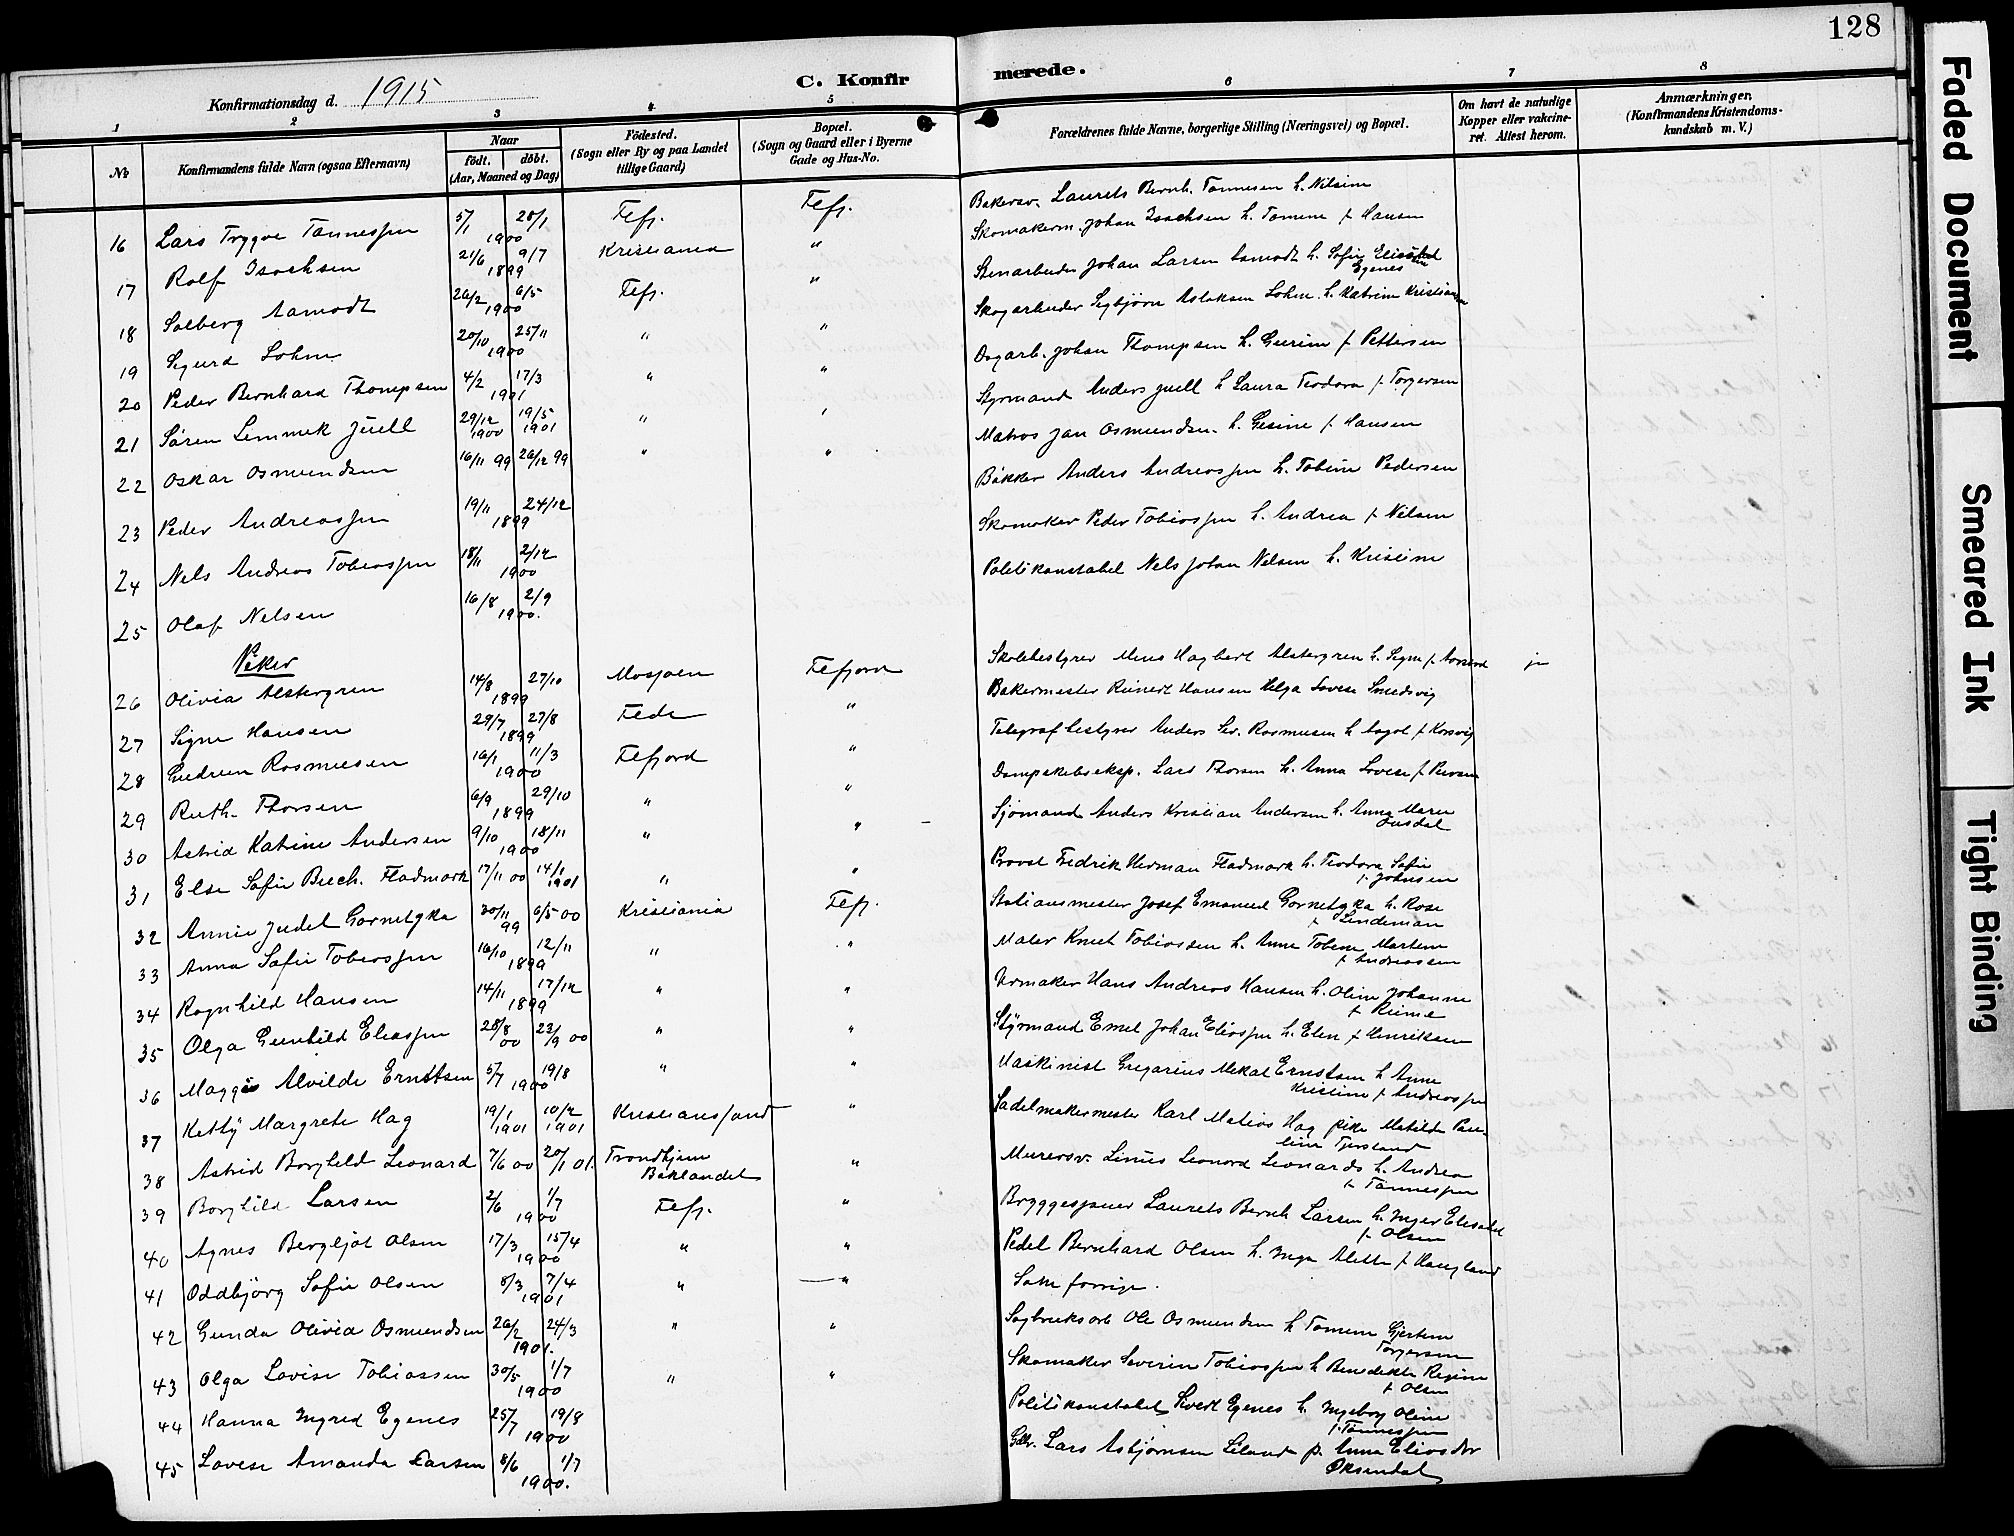 128
C. Konfirmerede.
Konfirmationsdag d. 1915
1 2 3 4 5 6 7 8
No
Konfirmandens fulde Navn (ogsaa Efternavn)
Naar
födt. döbt.
(Aar, Maaned og Dag)
Födested.
(Sogn eller By og paa Landet
tillige Gaard)
Bopæl.
(Sogn og Gaard eller i Byerne
Gade og Hus-No.
Forældrenes fulde Navne, borgerlige Stilling (Næringsvei) og Bopæl.
Om havt de naturlige
Kopper eller vakcine-
ret. Attest herom.
Anmærkninger.
(Konfirmandens Kristendoms-
kundskab m. V.)
16 Lars Trygve Tønnessen 5/1 28/1 1900 Flefj. Flefj. Bakersv. Laurets Bernh. Tønnesen h. Nilsine
17 Rolf Isachsen 21/6 9/7 1899 Kristiania " Skomakerm. Johan Isachsen h. Tomine f. Hansen
18 Solberg Aamodt 26/2 6/5 1900 Flefj. " Stenarbeider Johan Larsen Aamodt h. Sofie
Egenes
19 Sigurd Lohne 20/10 25/11 1900 " " Skogarbeider Sigbjörn Aslaksen Lohne h. Katrine Kristiansen
20 Peder Bernhard Thompsen 4/2 17/3 1901 " " Dagarb. Johan Thompsen h. Gurine f. Pettersen
21 Søren Lemmek Juell 29/12 1900 19/5 1901 " " Styrmand Anders Juell h Laura Teodora f. Torgersen
22 Oskar Osmundsen 16/11 99 26/12 99 " " Matros Jan Osmundsen. h. Gesine f. Hansen
23 Peder Andreassen 19/11 24/12 1899 Bøkker Anders Andreassen h. Tobine Pedersen
24 Nels Andreas Tobiassen 18/11 2/12 1900 Skomaker Peder Tobiassen h. Andrea f. Nelsen
25 Olaf Nelsen 16/8 2/9 1900. Politikonstabel Nels Johan Nelsen h. Kristine
Piker
26 Olivia Alstergren 14/8 27/10 1899 Mosjøen Flefjord Skolebestyrer Mons Hagbart Alstergren h. Signe f. ja
27 Signe Hansen 29/7 27/8 1899 Feda " Bakermester Reinert Hansen Helga Lovise Smedsvig
28 Gudrun Rasmusen 16/1 11/3 1900 Flefjord " Telegrafbestyrer Anders Sev. Rasmusen h. Aagot f. Korsvig
29 Ruth Thorsen 6/9 29/10 1899 " " Dampskibseksp. Lars Thorsen h. Anna Lovise f. Iversen
30 Astrid Katrine Andersen 9/10 18/11 1900 " " Sjömand Anders Kristian Andersen h. Anna Marie
Jusdal
31 Else Sofie Buch. Fladmark 17/11 00 14/1 1901 " " Provst Fredrik Herman Fladmark h. Teodora Sofie
f. Johnsen
32 Annie Judel Gornetzka 30/11 99 6/5 00 Kristiania Flefj. Stationsmester Josef Emanuel Gornetzka h. Rose
f. Lindeman
33 Anna Sofie Tobiassen 16/10 12/11 1899 " " Maler Knut Tobiassen h. Anne Tobine Martine
f. Andreassen
34 Ragnhild Hansen 14/11 17/12 1899 " " Urmaker Hans Andreas Hansen h. Oline Johanne
f. Reime
35 Olga Gunhild Eliassen 28/8 00 23/9 00 " " Styrmand Emel Johan Eliassen h. Elen f. Henriksen
36 Maggie Alvilde Ernstsen 5/7 19/8 1900 " " Maskinist Gregarius Mekal Ernstsen h Anne
Kristine f. Andreassen
37 Ketty Margrete Hag 19/1 1901 10/2 1901 Kristiansand " Sadelmakermester Karl Matias Hag pike Matilde Pau-
line Tjersland
38 Astrid Borghild Leonard 7/6 00 20/1 01. Trondhjem
Baklandet " Murersv. Linus Leonard Leonards h. Andrea
f. Tønnessen
39 Borghild Larsen 2/6 1/7 1900 Flefj. " Bryggesjauer Laurets Bernh Larsen h. Inger Elisabet
f. Olsen
40 Agnes Bergljot Olsen 17/3 15/4 1900 " " Pedel Bernhard Olsen h. Inga Alette f. Haugland
41 Oddbjörg Sofie Olsen 8/3 7/4 1901 " " Som forrige.
42 Gunda Olivia Osmundsen 26/2 24/3 1901. " " Sagbruksarb Ole Osmundsen h Tomine Gjertine
Torgersen
43 Olga Lovise Tobiassen 30/5 1/7 1900 " " Skomaker Severin Tobiassen h Benedikte Regine
f. Olsen
44 Hanna Ingred Egenes 25/7 19/8 1900 Politikonstabel Sivert Egenes h. Ingeborg Oline
f. Tønnessen
45 Lovise Amanda Larsen 8/6 1/7 1900. Gdbr. Lars Asbjørnsen Eiland p. Anna Eliasdtr
Øksendal
Faded Document
Smeared Ink
Tight Binding